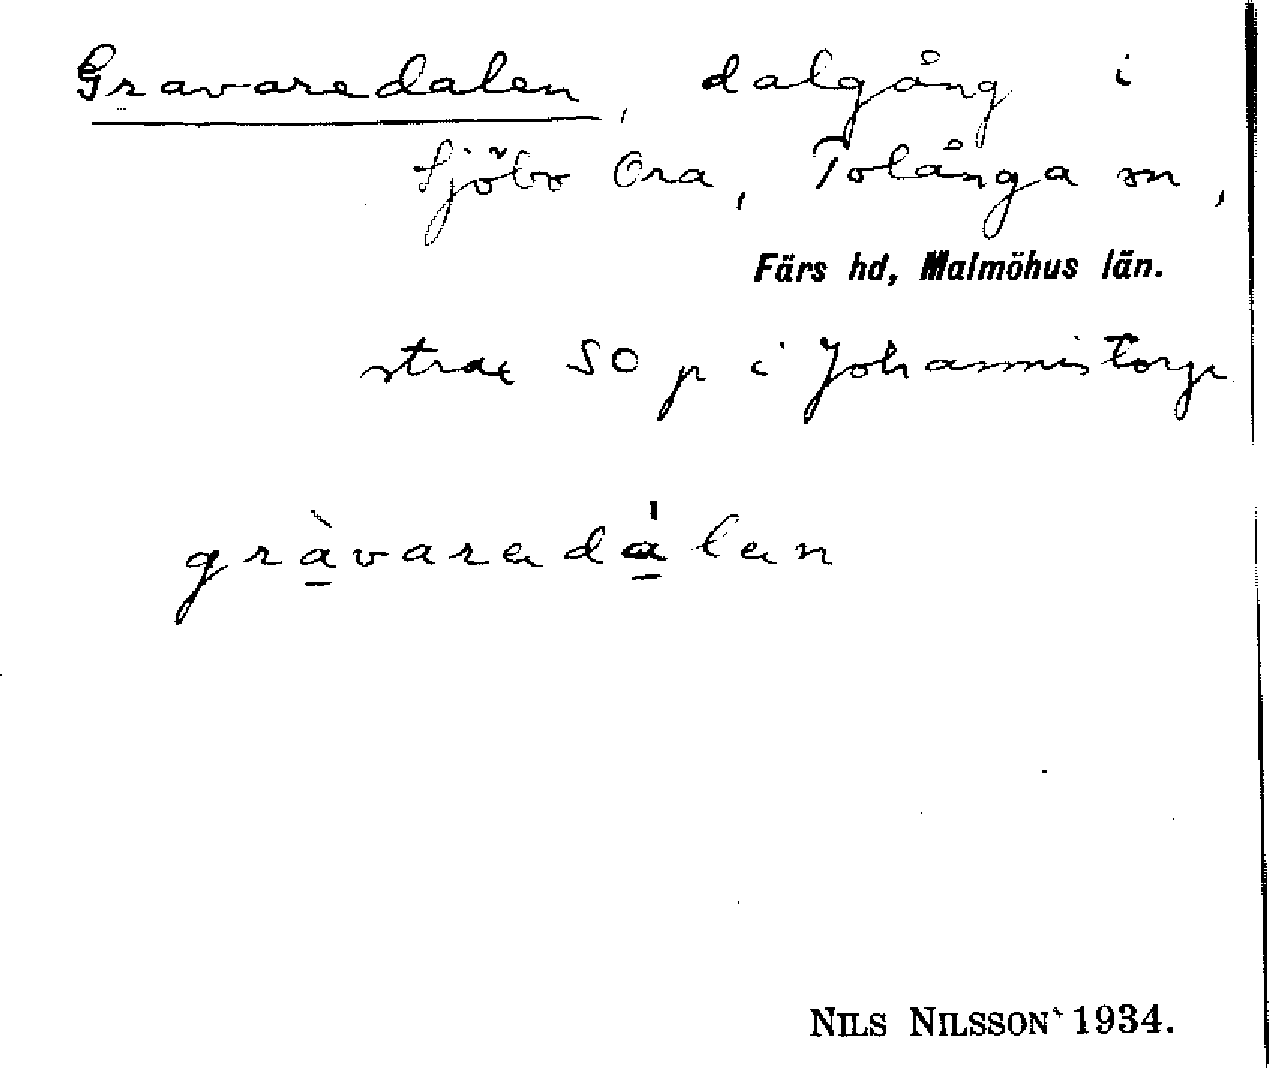 Gravaredalen, dalgång i
Sjöbo Ora, Tolånga sn,
Färs hd, Malmöhus län.
strax SO p i Johannistorp
gràvaredálen
NILS NILSSON 1934.